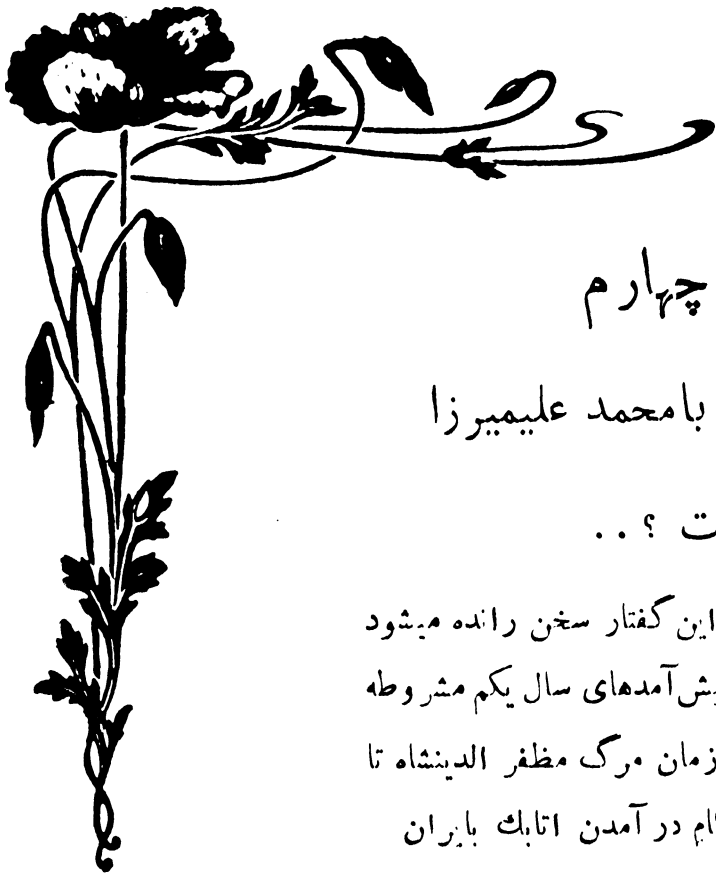 چهارم
با محمد علیمیرزا
ت ؟..
این گفتار سخن رانده میشود
یش‌آمدهای سال یکم مشروطه
زمان مرگ مظفر الدینشاه تا
در آمدن اتابك بایران